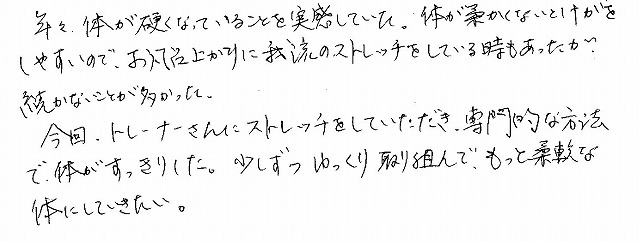 年々、体が硬くなっていることを実感していた。体が柔かくないとけがを
しやすいので、お風呂上がりに我流のストレッチをしている時もあったが、
続かないことが多かった。
今回、トレーナーさんにストレッチをしていただき、専門的な方法
で、体がすっきりした。少しずつゆっくり取り組んで、もっと柔軟な
体にしていきたい。